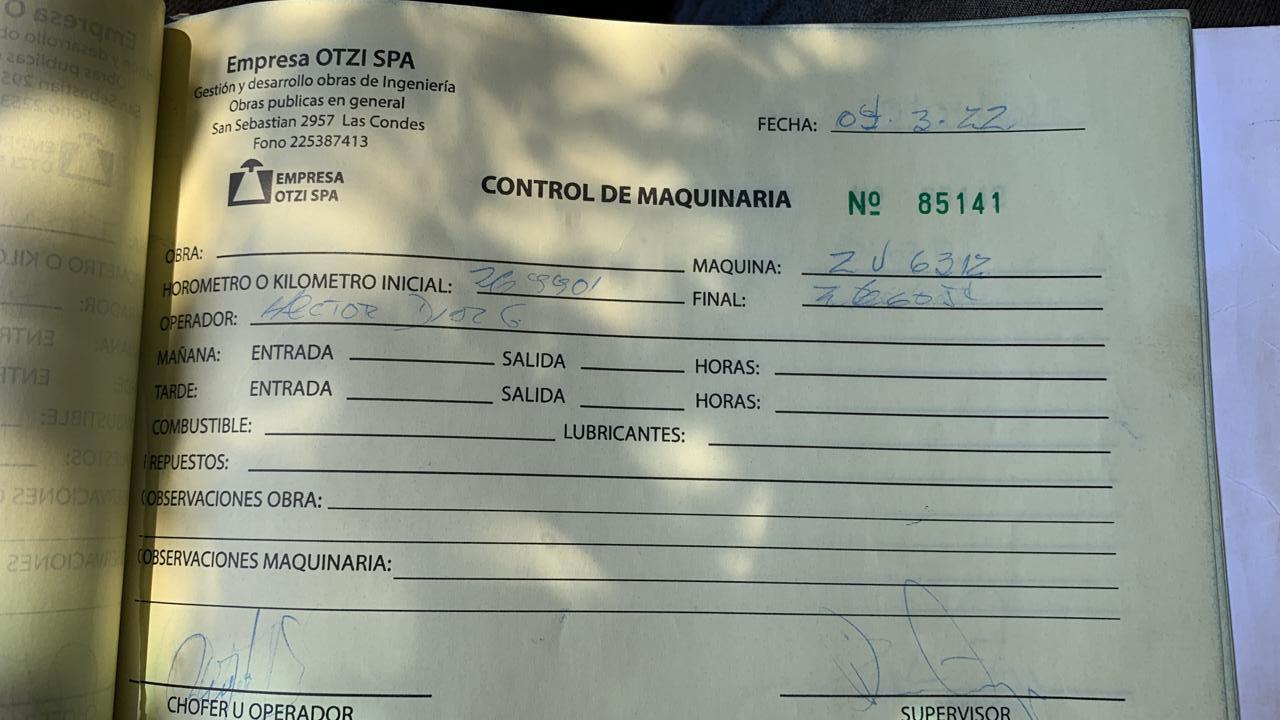 Empresa OTZI SPA
Gestión y desarrollo obras de Ingeniería
Obras publicas en general
San Sebastian 2957 Las Condes
Fono 225387413
FECHA: 3.22
EMPRESA
OTZI SPA
CONTROL DE MAQUINARIA Nº 85141
OBRA: MAQUINA: ZU 6312
HOROMETRO O KILOMETRO INICIAL: FINAL:
OPERADOR: HECTOR
MAÑANA: ENTRADA SALIDA HORAS:
TARDE: ENTRADA SALIDA HORAS:
COMBUSTIBLE: LUBRICANTES:
REPUESTOS:
OBSERVACIONES OBRA:
OBSERVACIONES MAQUINARIA:
CHOFER U OPERADOR SUPERVISOR